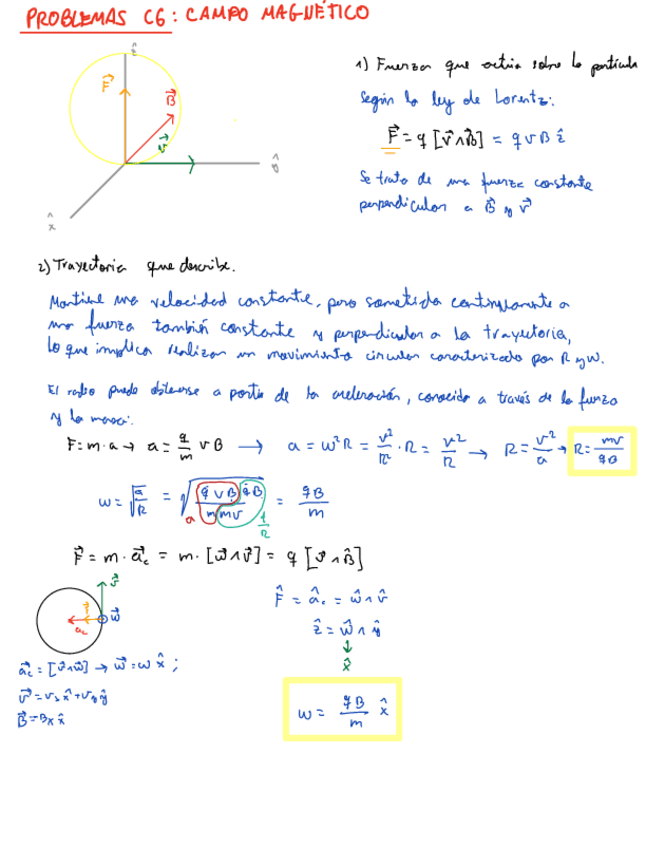 PROBLEMAS C6: CAMPO MAGNÉTICO
ẑ
F⃗
B⃗
v⃗
ŷ
x̂
1) Fuerza que actúa sobre la partícula
según la ley de Lorentz:
F⃗ = q [v⃗ ∧ B⃗] = q v B ẑ
Se trata de una fuerza constante
perpendicular a B⃗ y v⃗
2) Trayectoria que describe.
Mantiene una velocidad constante, pero sometida continuamente a
una fuerza también constante y perpendicular a la trayectoria,
lo que implica realizar un movimiento circular caracterizado por R y w.
El radio puede obtenerse a partir de la aceleración, conocida a través de la fuerza
y la masa:
F = m·a → a = q/m v B → a = w²R = v²/R² · R = v²/R → R = v²/a → R = mv/qB
w = √(a/R) = √(q v B qB / m mv) = qB/m
a
1/R
F⃗ = m·a⃗c = m·[w⃗ ∧ v⃗] = q [v⃗ ∧ B⃗]
v⃗
F⃗
w⃗
ac
F̂ = âc = ŵ ∧ v̂
ẑ = ŵ ∧ ŷ
↓
x̂
a⃗c = [v⃗ ∧ w⃗] → w⃗ = w x̂ ;
v⃗ = vz x̂ + vy ŷ
B⃗ = Bx x̂
w = qB/m x̂